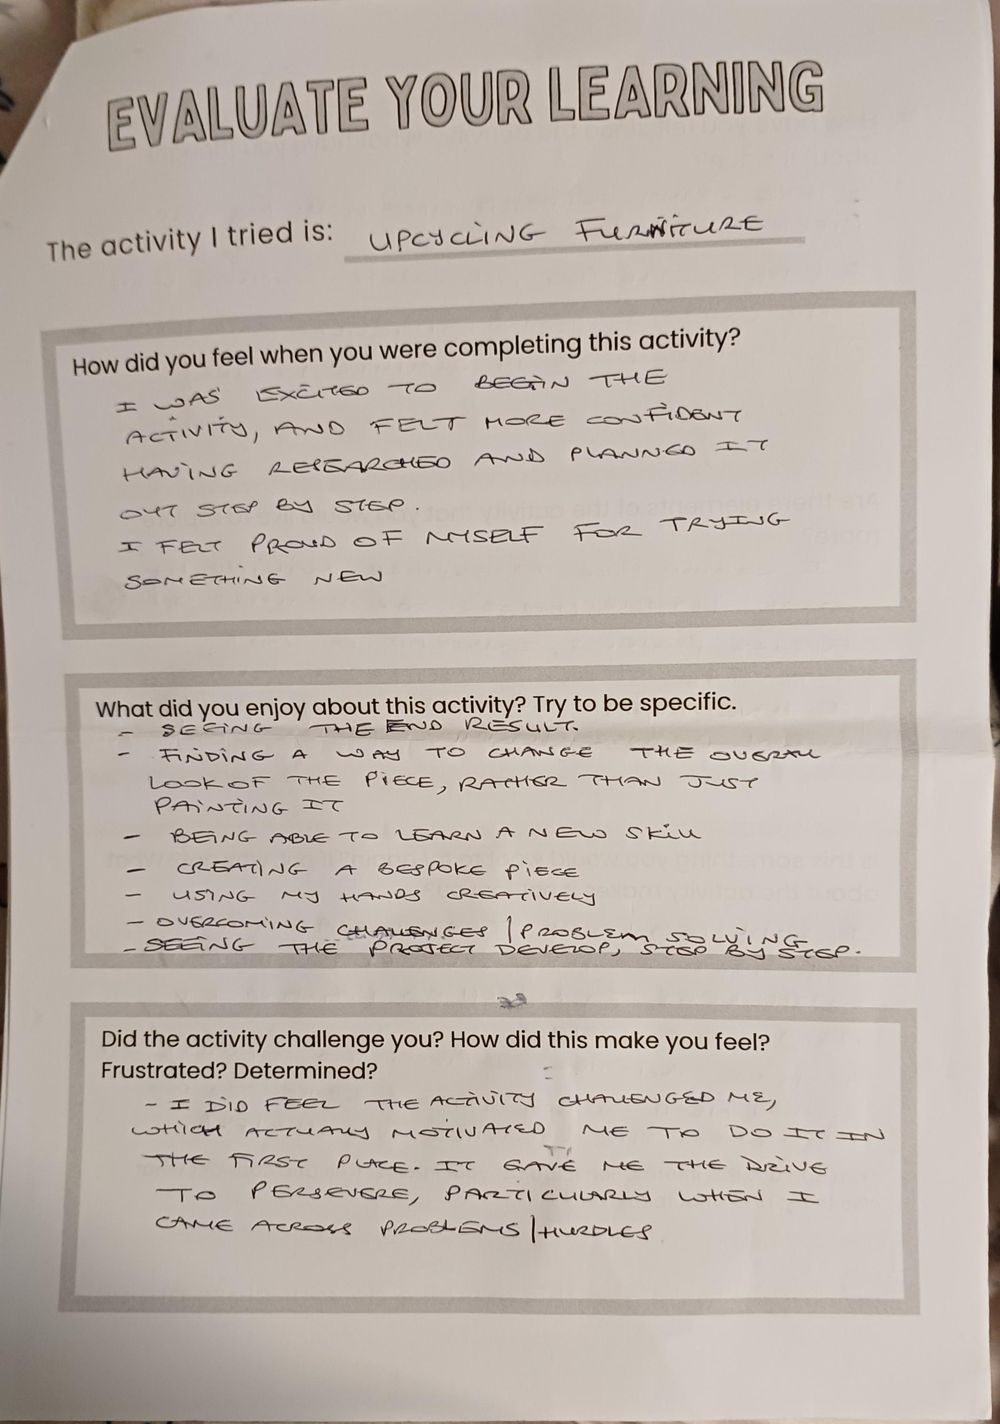 EVALUATE YOUR LEARNING
The activity I tried is: UPCYCLING FURNITURE
How did you feel when you were completing this activity?
I WAS EXCITED TO BEGIN THE
ACTIVITY, AND FELT MORE CONFIDENT
HAVING RESEARCHED AND PLANNED IT
OUT STEP BY STEP.
I FELT PROUD OF MYSELF FOR TRYING
SOMETHING NEW
What did you enjoy about this activity? Try to be specific.
- SEEING THE END RESULT.
- FINDING A WAY TO CHANGE THE OVERALL
LOOK OF THE PIECE, RATHER THAN JUST
PAINTING IT
- BEING ABLE TO LEARN A NEW SKILL
- CREATING A BESPOKE PIECE
- USING MY HANDS CREATIVELY
- OVERCOMING CHALLENGES / PROBLEM SOLVING
- SEEING THE PROJECT DEVELOP, STEP BY STEP.
Did the activity challenge you? How did this make you feel?
Frustrated? Determined?
- I DID FEEL THE ACTIVITY CHALLENGED ME,
WHICH ACTUALLY MOTIVATED ME TO DO IT IN
THE FIRST PLACE. IT GAVE ME THE DRIVE
TO PERSEVERE, PARTICULARLY WHEN I
CAME ACROSS PROBLEMS / HURDLES